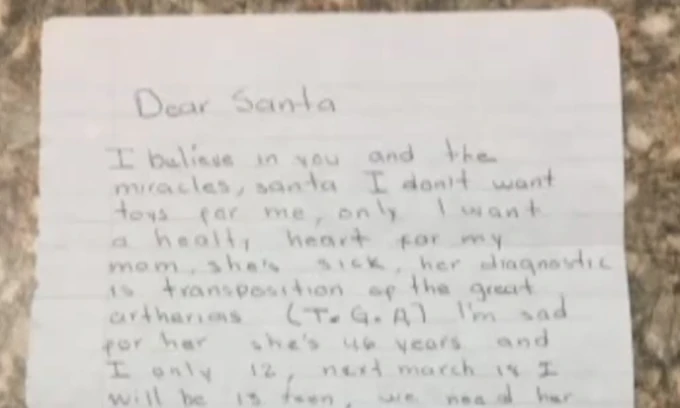 Dear Santa
I believe in you and the
miracles, santa I don't want
toys for me, only I want
a healty heart for my
mom, she's sick, her diagnostic
is transposition of the great
artherias (T.G.A) I'm sad
for her she's 46 years and
I only 12, next march 18 I
will be 13 teen, we need her